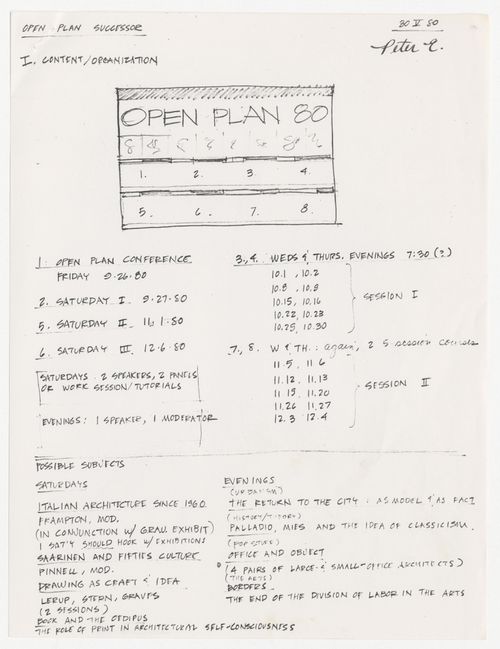 OPEN PLAN SUCCESSOR
30 V 80
Peter E.
I. CONTENT/ORGANIZATION
OPEN PLAN 80
1. 2. 3. 4.
5. 6. 7. 8.
1. OPEN PLAN CONFERENCE
FRIDAY 9·26·80
2. SATURDAY I 9·27·80
5. SATURDAY II 11·1·80
6. SATURDAY III 12·6·80
SATURDAYS: 2 SPEAKERS, 2 PANELS
OR WORK SESSION/TUTORIALS
EVENINGS: 1 SPEAKER, 1 MODERATOR
3., 4. WEDS & THURS. EVENINGS 7:30 (?)
10.1, 10.2
10.8, 10.9
10.15, 10.16
10.22, 10.23
10.29, 10.30
SESSION I
7., 8. W & TH.: again, 2 5 session courses
11.5, 11.6
11.12, 11.13
11.19, 11.20
11.26 11.27
12.3 12.4
SESSION II
POSSIBLE SUBJECTS
SATURDAYS
ITALIAN ARCHITECTURE SINCE 1960
FRAMPTON, MOD.
(IN CONJUNCTION W/ GRAV. EXHIBIT)
1 SAT'Y SHOULD HOOK W/ EXHIBITIONS
SAARINEN AND FIFTIES CULTURE
PINNELL, MOD.
DRAWING AS CRAFT & IDEA
LERUP, STERN, GRAVES
(2 SESSIONS)
BOOK AND THE OEDIPUS
THE ROLE OF PRINT IN ARCHITECTURAL SELF-CONSCIOUSNESS
EVENINGS
(URBANISM)
THE RETURN TO THE CITY: AS MODEL & AS FACT
(HISTORY/THEORY)
PALLADIO, MIES AND THE IDEA OF CLASSICISM
(POP STUFF)
OFFICE AND OBJECT
(4 PAIRS OF LARGE- & SMALL-OFFICE ARCHITECTS)
(THE ARTS)
BORDERS
THE END OF THE DIVISION OF LABOR IN THE ARTS